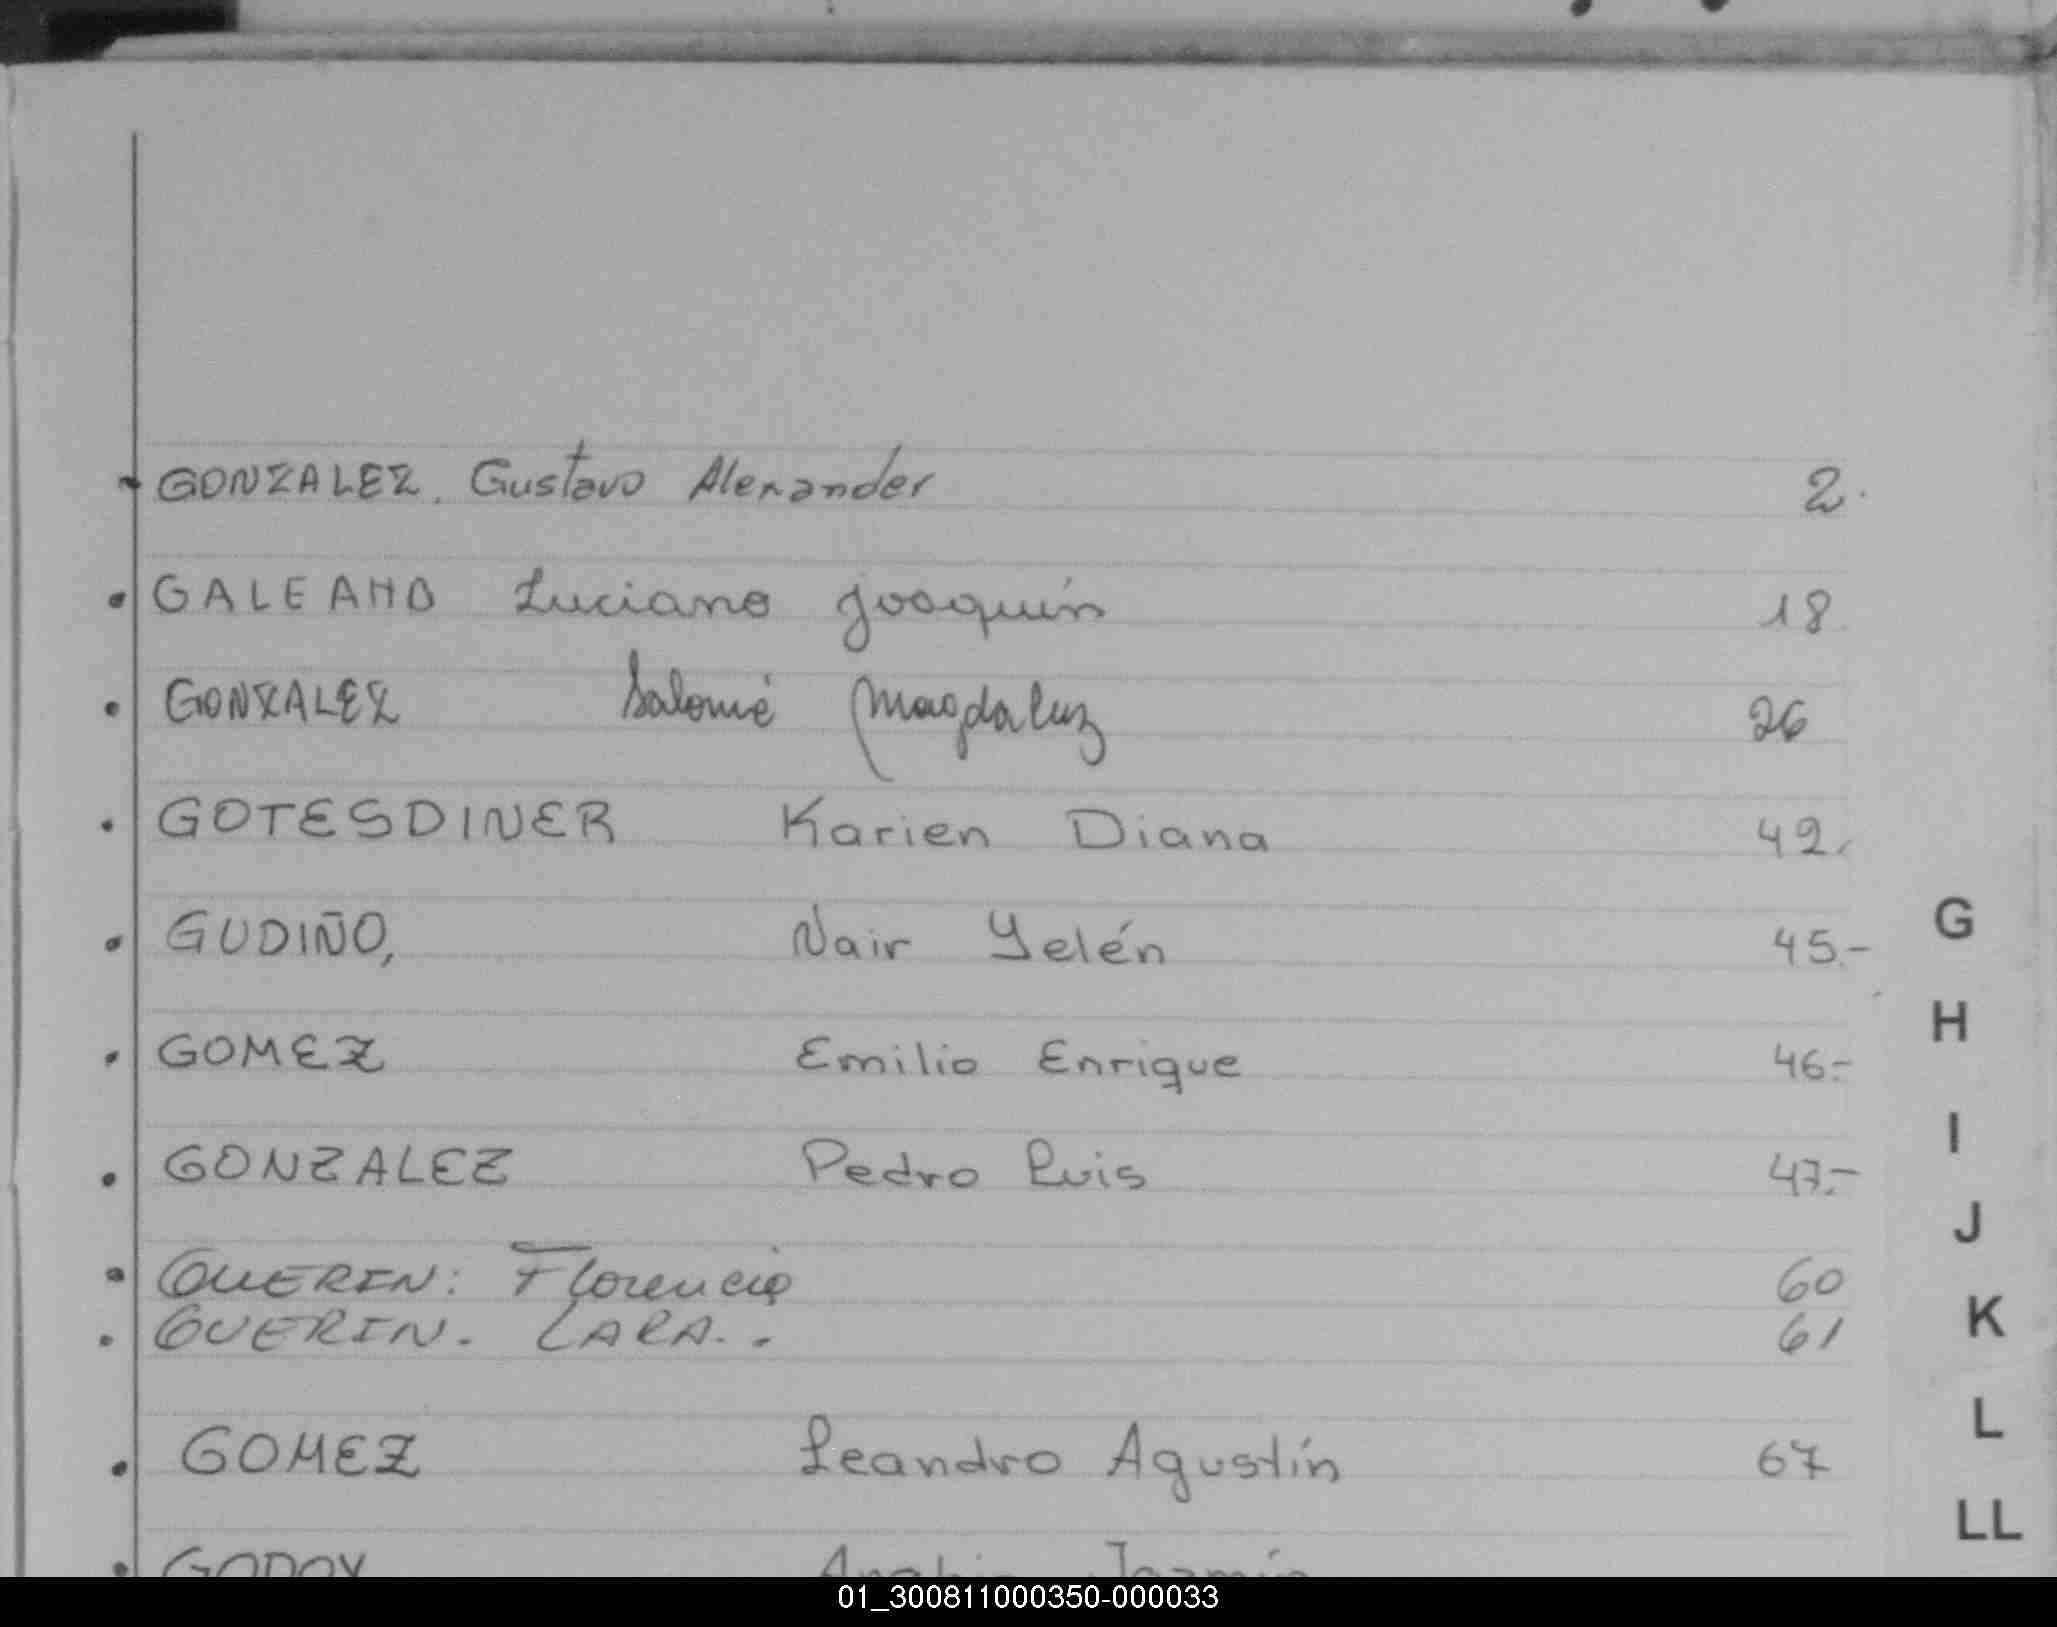 GONZALEZ. Gustavo Alexander 2.
GALEANO Luciano Joaquín 18
GONZALEZ Salomé Magdaluz 26
GOTESDINER Karien Diana 42.
GUDIÑO, Nair Yelén 45.-
G
H
GOMEZ Emilio Enrique 46.-
I
GONZALEZ Pedro Luis 47.-
J
GUERIN: Florencia 60
K
GUERIN. LARA.. 61
L
GOMEZ Leandro Agustín 67
LL
GODOY Jazmín
01_300811000350-000033